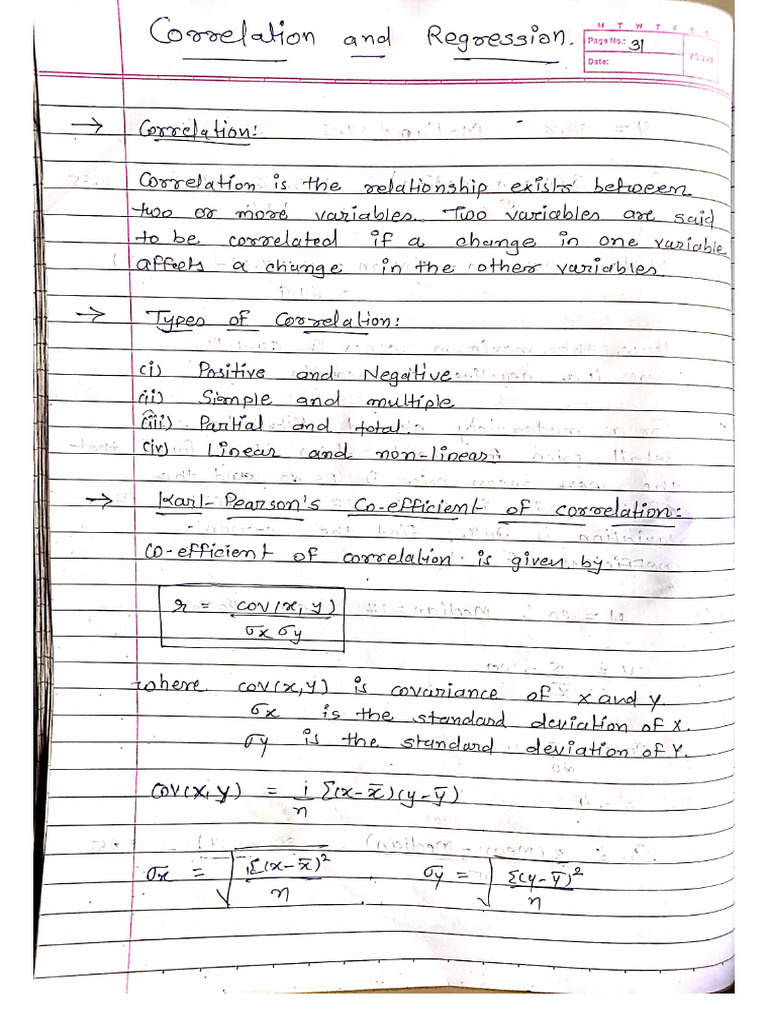 Correlation and Regression.
M T W T F S S
Page No.: 31
Date:
YOUVA
→ Correlation:
Correlation is the relationship exists between
two or more variables. Two variables are said
to be correlated if a change in one variable
affects a change in the other variables.
→ Types of Correlation:
(i) Positive and Negative
(ii) Simple and multiple
(iii) Partial and total.
(iv) Linear and non-linear
→ Karl-Pearson's Co-efficient of correlation:
co-efficient of correlation is given by
r = cov(x, y) / σx σy
where cov(x,y) is covariance of x and y.
σx is the standard deviation of x.
σy is the standard deviation of Y.
cov(x,y) = 1/n Σ(x-x̄)(y-ȳ)
σx = √(Σ(x-x̄)²/n) , σy = √(Σ(y-ȳ)²/n)